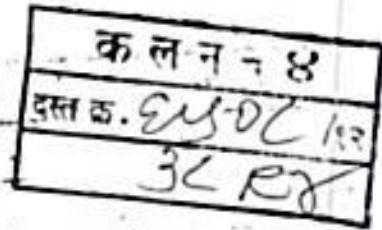 क ल न - ४
दस्त क्र. ६५०८ /१२
३८